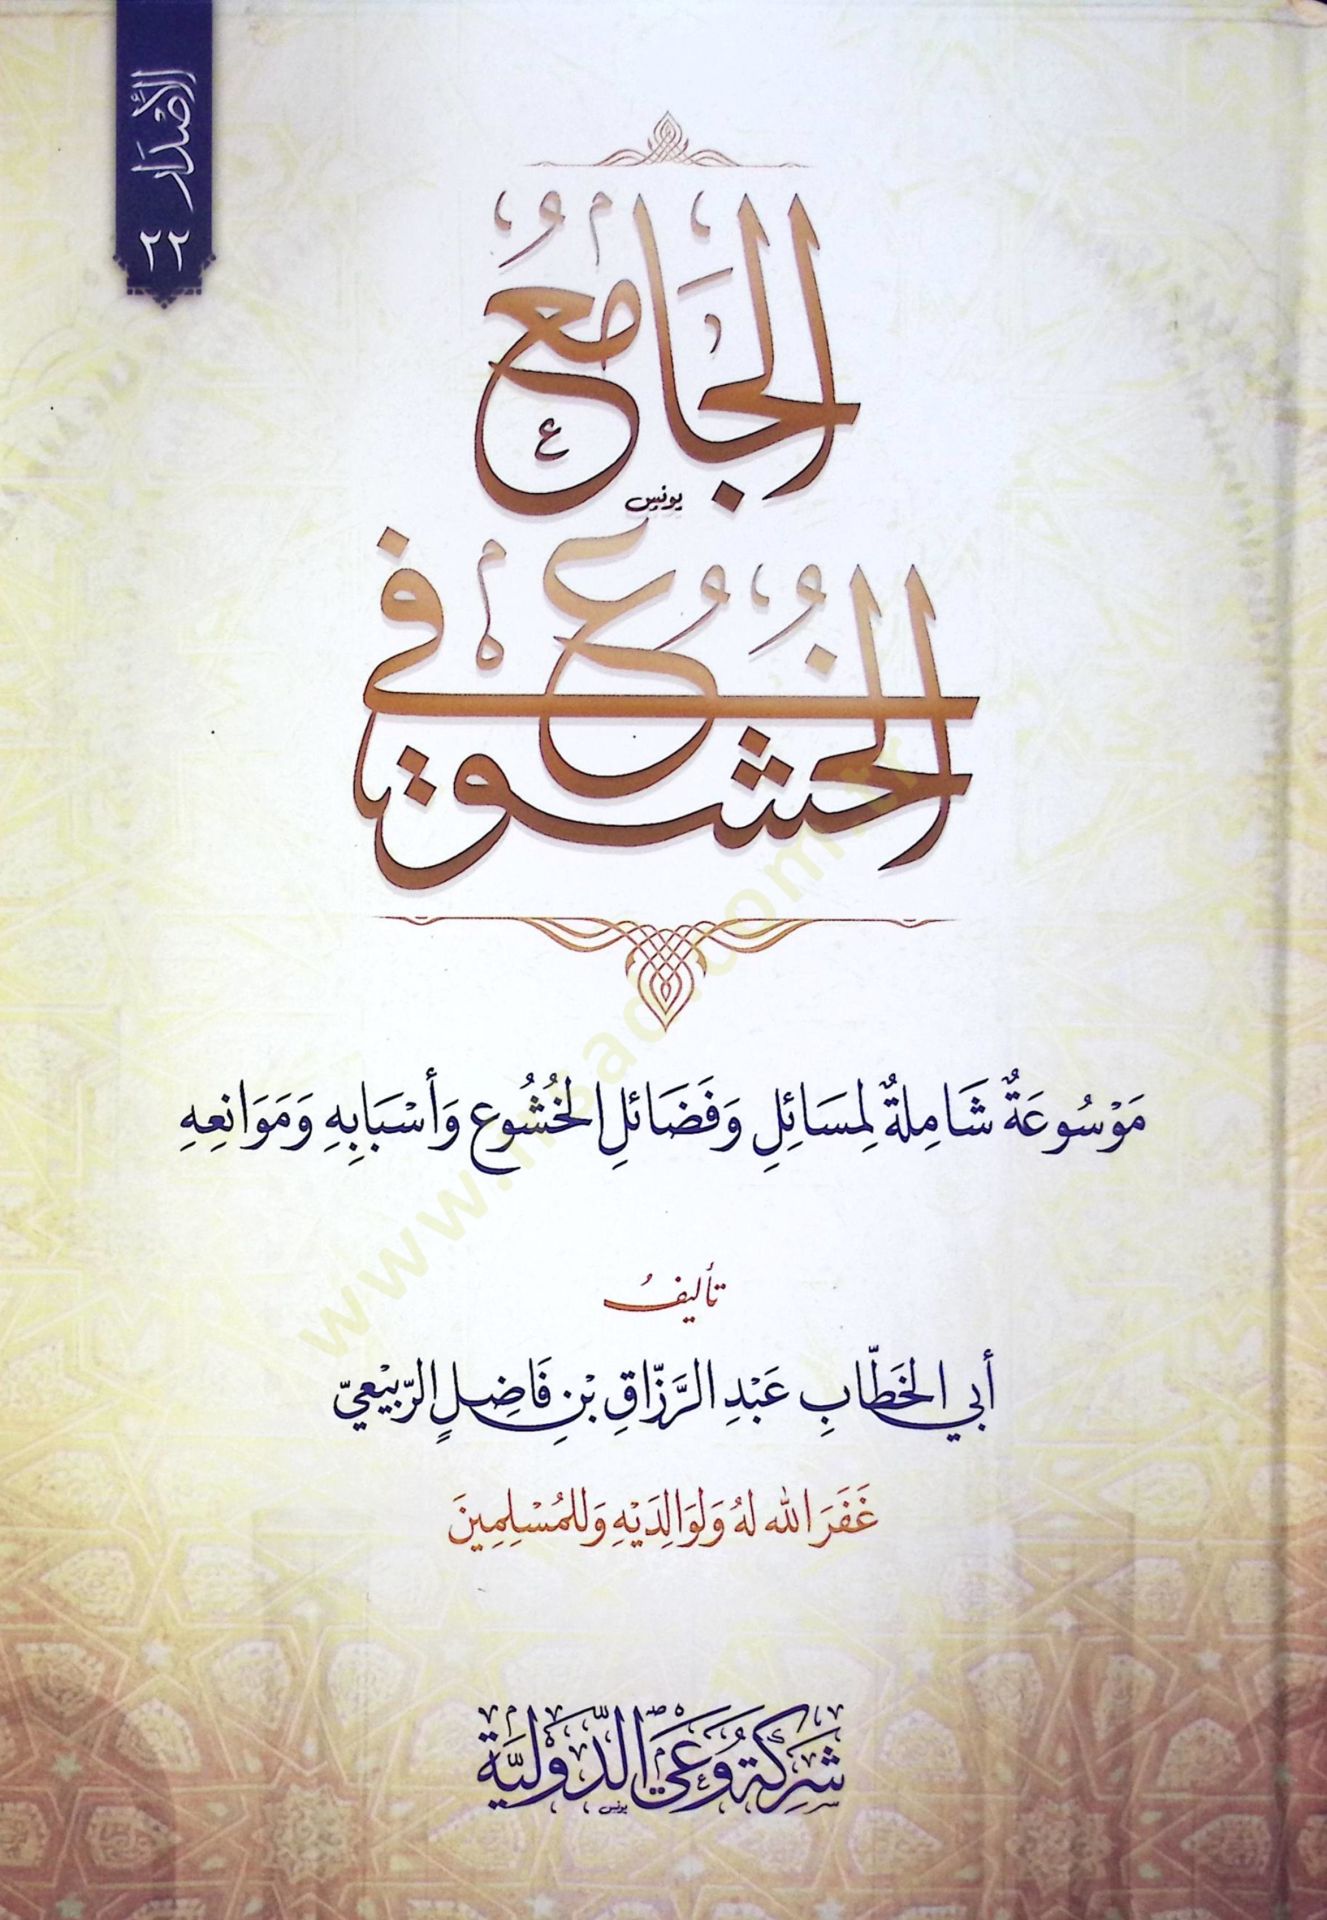 الأصدار ٢٢
الجَامِعُ
يونس
في الخُشُوعِ
مَوْسُوعَةٌ شَامِلةٌ لِمسَائِلِ وَفَضَائلِ الخُشُوع وَأسْبَابِهِ وَمَوَانِعِهِ
تأليفُ
أبي الخَطَّابِ عَبْدِ الرَّزَّاقِ بْنِ فَاضِلٍ الرّبيْعيّ
غَفَرَ الله لهُ وَلوَالِديْهِ وَللمُسْلِمِينَ
شَرِكَة وَعْي الدَّوْليَّة
يونس